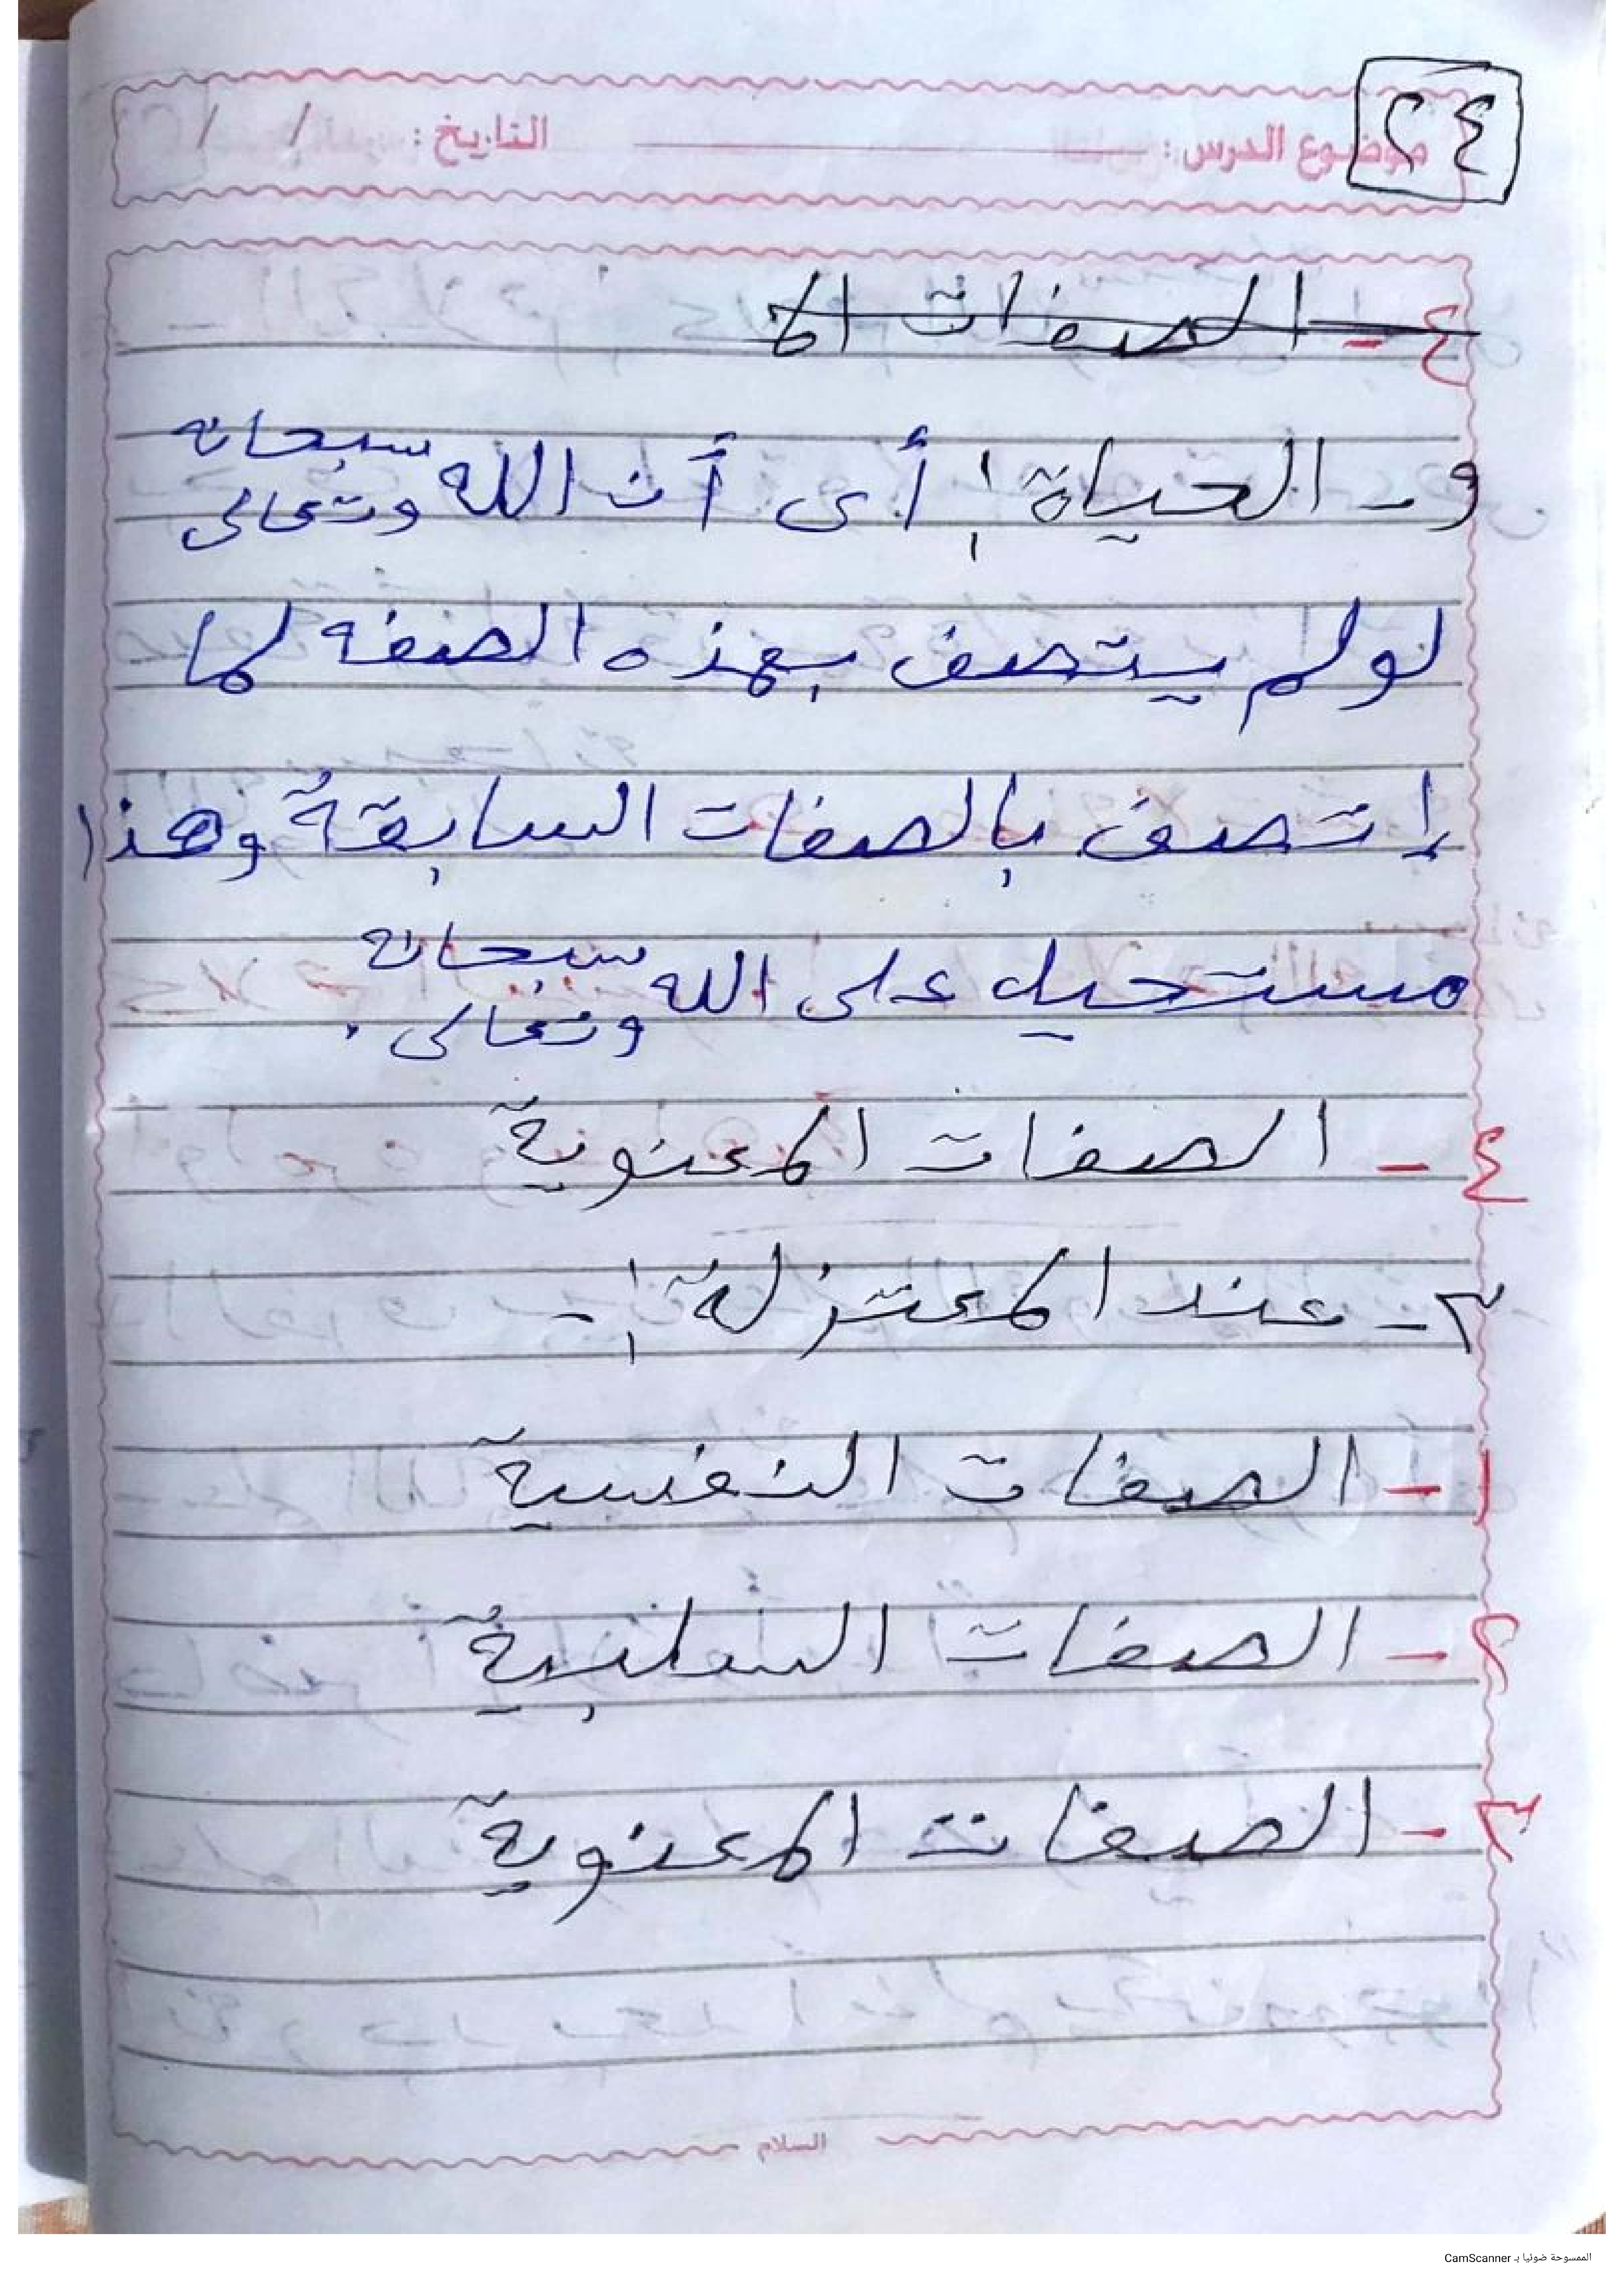 ٢٤
موضوع الدرس : التاريخ : / /
٤ - الصفات الم
و - الحياة : أى أن الله سبحانه وتعالى
لو لم يتصف بهذه الصفه لما
إتصف بالصفات السابقة وهذا
مستحيل على الله سبحانه وتعالى .
٤ - الصفات المعنوية
٣ - عند المعتزلة :-
١ - الصفات النفسية
٢ - الصفات السلبية
٣ - الصفات المعنوية
السلام
الممسوحة ضوئيا بـ CamScanner